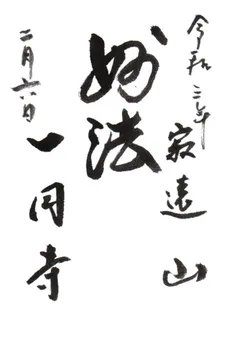 令和三年
寂遠山
妙法
二月六日
一円寺